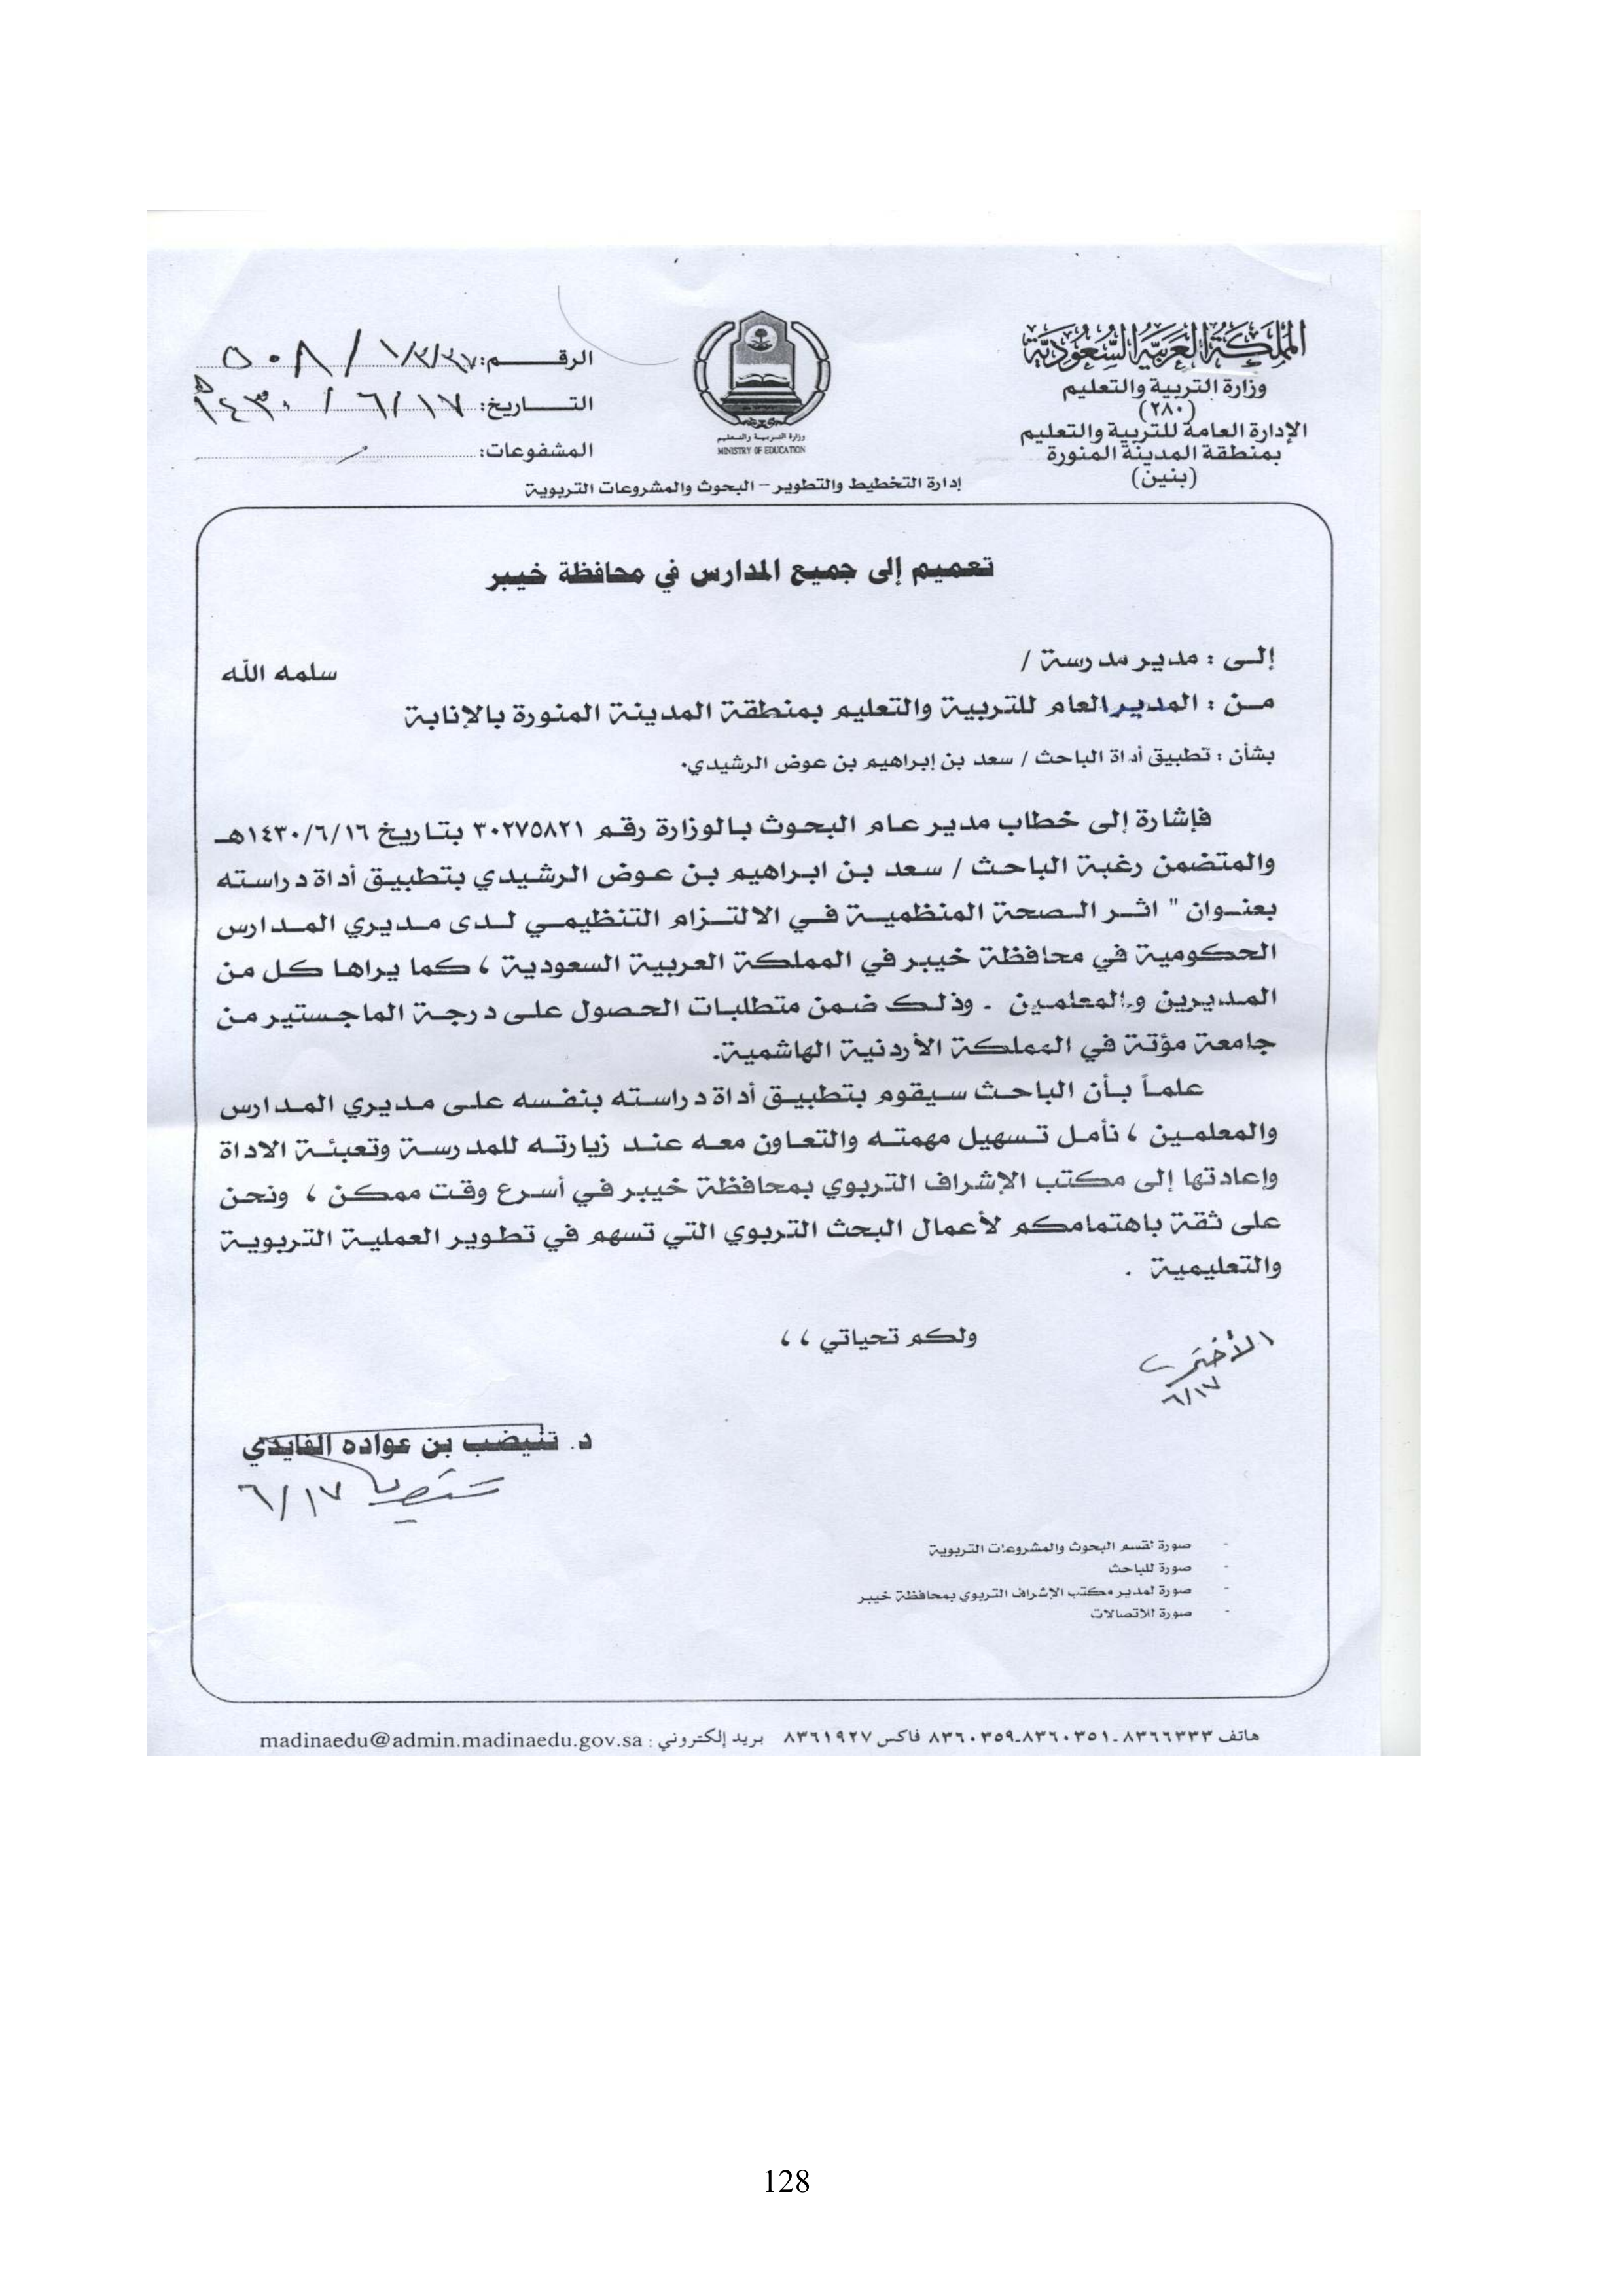 المملكة العربية السعودية
وزارة التربية والتعليم
(٢٨٠)
الإدارة العامة للتربية والتعليم
بمنطقة المدينة المنورة
(بنين)
وزارة التربية والتعليم
MINISTRY OF EDUCATION
الرقـــــــم: ١/٣/٣٧ / ٥٠٨
التـــــاريخ: ٦/١٧ / ١٤٣٠هـ
المشفوعات:
إدارة التخطيط والتطوير – البحوث والمشروعات التربوية
تعميم إلى جميع المدارس في محافظة خيبر
إلـى : مدير مدرسة / سلمه الله
مـن : المدير العام للتربية والتعليم بمنطقة المدينة المنورة بالإنابة
بشأن : تطبيق أداة الباحث / سعد بن إبراهيم بن عوض الرشيدي.
فإشارة إلى خطاب مدير عام البحوث بالوزارة رقم ٣٠٢٧٥٨٢١ بتاريخ ١٤٣٠/٦/١٦هـ
والمتضمن رغبة الباحث / سعد بن ابراهيم بن عوض الرشيدي بتطبيق أداة دراسته
بعنـوان " اثـر الـصحة المنظميـة فـي الالتـزام التنظيمـي لـدى مـديري المـدارس
الحكومية في محافظة خيبر في المملكة العربية السعودية ، كما يراها كل من
المديرين والمعلمين . وذلك ضمن متطلبات الحصول على درجة الماجستير من
جامعة مؤتة في المملكة الأردنية الهاشمية.
علمـاً بـأن الباحث سيقوم بتطبيق أداة دراسته بنفسه علـى مـديري المدارس
والمعلمـين ، نأمـل تـسهيل مهمتـه والتعـاون معـه عنـد زيارتـه للمدرسـة وتعبئـة الاداة
وإعادتها إلى مكتب الإشراف التربوي بمحافظة خيبر في أسرع وقت ممكن ، ونحن
على ثقة باهتمامكم لأعمال البحث التربوي التي تسهم في تطوير العملية التربوية
والتعليمية .
ولكم تحياتي ، ،
٦/١٧
د. تنيضب بن عواده الفايدي
٦/١٧
- صورة لقسم البحوث والمشروعات التربوية
- صورة للباحث
- صورة لمدير مكتب الإشراف التربوي بمحافظة خيبر
- صورة للاتصالات
هاتف ٨٣٦٦٣٣٣ـ٨٣٦٠٣٥١ـ٨٣٦٠٣٥٩ فاكس ٨٣٦١٩٢٧ بريد إلكتروني : madinaedu@admin.madinaedu.gov.sa
128